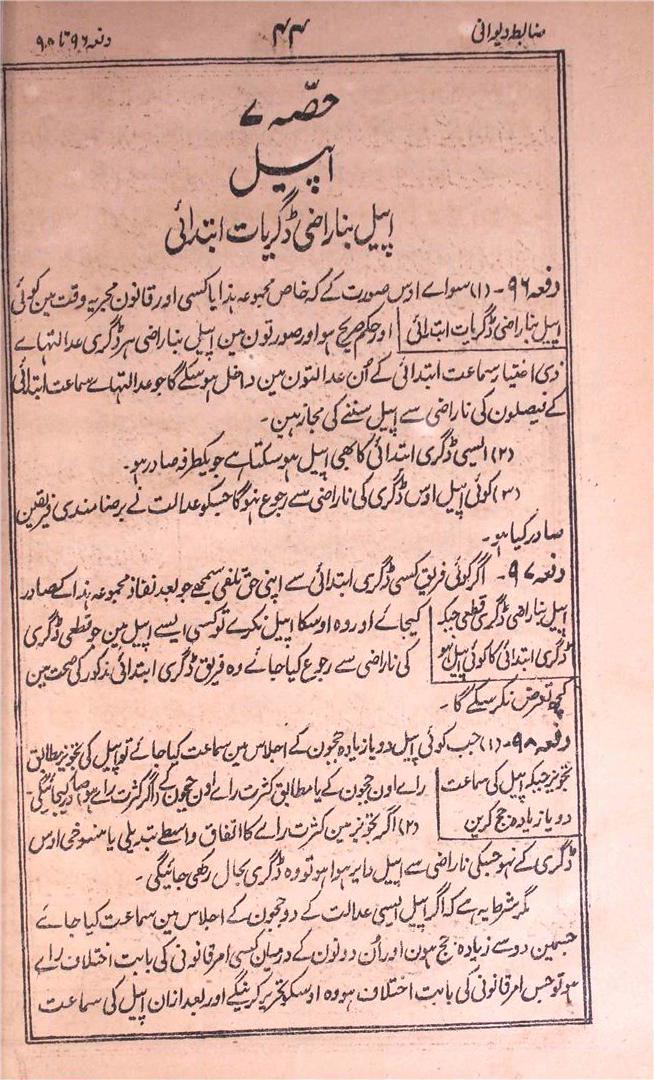 ضابطہ دیوانی
۴۴
دفعہ ۹۶ تا ۹۸
حصّہ ۷
اپیل
اپیل بناراضی ڈگریات ابتدائی
دفعہ ۹۶۔ (۱) سواے اوس صورت کے کہ خاص مجموعہ ہذا یا کسی اور قانون مجریہ وقت مین کوئی
اپیل بناراضی ڈگریات ابتدائی
اور حکم صریح ہو اور صورتون مین اپیل بناراضی ہر ڈگری عدالتہاے
ذی اختیار سماعت ابتدائی کے اُن عدالتون مین داخل ہو سکے گا جو عدالتہاے سماعت ابتدائی
کے فیصلون کی ناراضی سے اپیل سننے کی مجاز ہین۔
(۲) ایسی ڈگری ابتدائی کا بھی اپیل ہو سکتا ہے جو یکطرفہ صادر ہو۔
(۳) کوئی اپیل اوس ڈگری کی ناراضی سے رجوع نہوگا جسکو عدالت نے برضامندی فریقین
صادر کیا ہو۔
دفعہ ۹۷۔ اگر کوئی فریق کسی ڈگری ابتدائی سے اپنی حق تلفی سمجھے جو بعد نفاذ مجموعہ ہذا کے صادر
اپیل بناراضی ڈگری قطعی جبکہ
ڈگری ابتدائی کا کوئی اپیل نہو
کیجائے اور وہ اوسکا اپیل نکرے تو کسی ایسے اپیل مین جو قطعی ڈگری
کی ناراضی سے رجوع کیا جائے وہ فریق ڈگری ابتدائی مذکور کی صحت مین
کچھ تعرض نکر سکے گا۔
دفعہ ۹۸۔ (۱) جب کوئی اپیل دو یا زیادہ ججون کے اجلاس مین سماعت کیا جائے تو اپیل کی تجویز مطابق
تجویز جبکہ اپیل کی سماعت
دو یا زیادہ جج کرین
راے اون ججون کے یا مطابق کثرت راے اون ججون کے (اگر کثرت راے ہو) صادر کیجائیگی۔
(۲) اگر تجویز مین کثرت راے کا اتفاق واسطے تبدیلی یا منسوخی اوس
ڈگری کے نہو جسکی ناراضی سے اپیل دایر ہوا ہو تو وہ ڈگری بحال رکھی جائیگی۔
مگر شرط یہ ہے کہ اگر اپیل ایسی عدالت کے دو ججون کے اجلاس مین سماعت کیا جائے
جسمین دو سے زیادہ جج ہون اور اُن دونون کے درمیان کسی امر قانونی کی بابت اختلاف راے
ہو تو جس امر قانونی کی بابت اختلاف ہو وہ اوسکو تحریر کرینگے اور بعد ازان اپیل کی سماعت